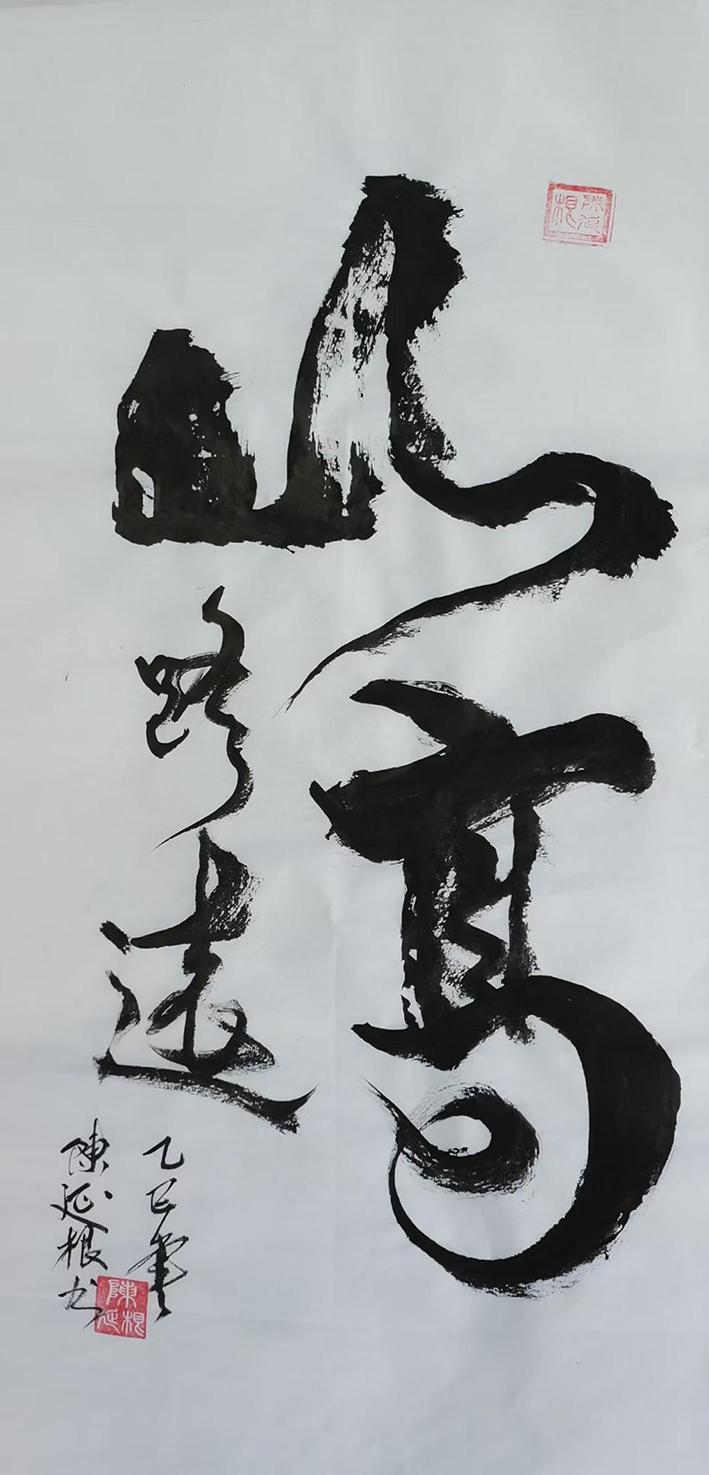 山高
路遠
乙巳年
陳延根书
陳延根
陳延根